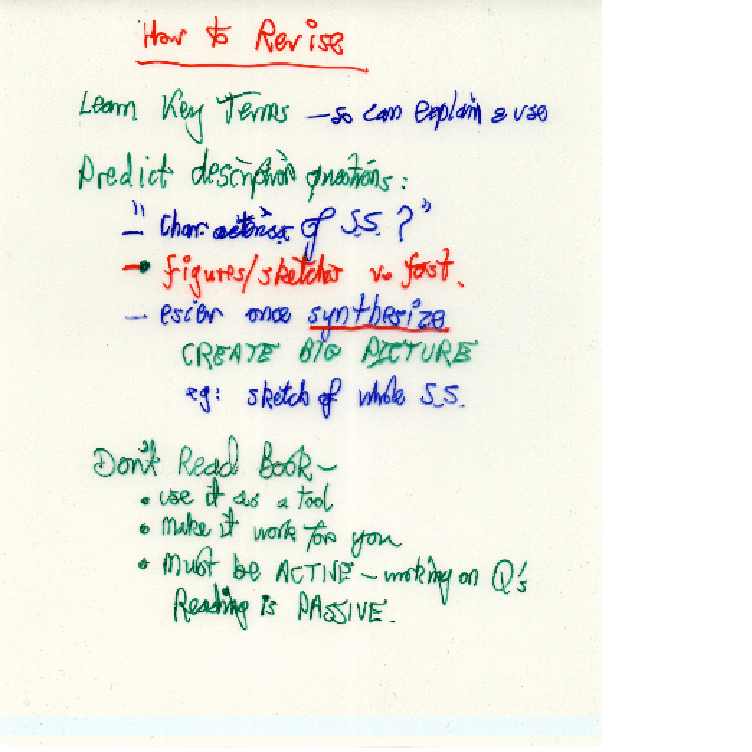 How to Revise
Learn Key Terms – so can explain & use
Predict description questions:
– "Characteristics of S.S.?"
– figures/sketches v. fast.
– esier once synthesize
CREATE BIG PICTURE
eg: sketch of whole S.S.
Don't Read Book –
• use it as a tool
• make it work for you
• Must be ACTIVE – working on Q's
Reading is PASSIVE.